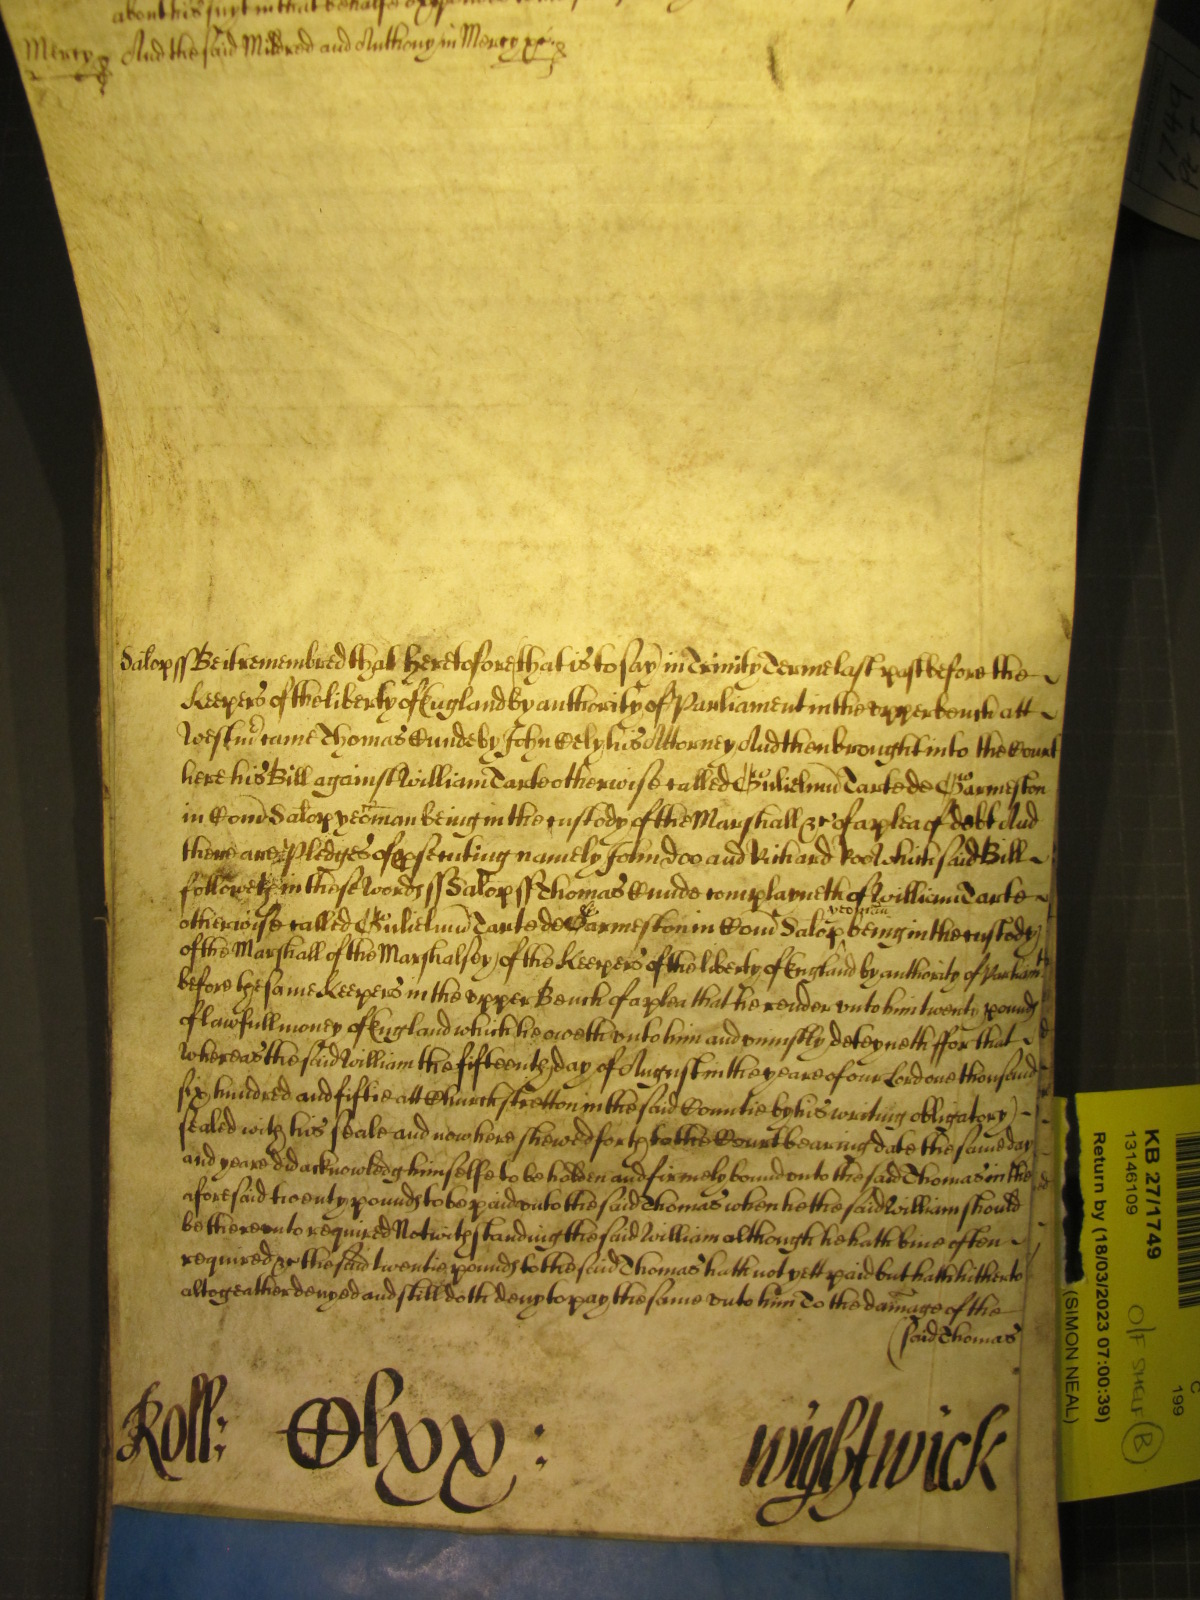 about his suyt in that behalfe
Mercy And the said Mildred and Anthony in Mercy &c
Salop ss Be it remembred that heretofore that is to say in Trinity Terme last past before the
Keepers of the liberty of England by authority of Parliament in the upper bench att
Westmr came Thomas Eunde by John Edy his Attorney And then brought into the Court
here his Bill against William Tarte otherwise called Gulielmu Tarte de Garmeston
in Com Salop yeoman being in the custody of the Marshall &c of a plea of debt And
there are Pledges of prsecuting namely John Doo and Richard Roo Which said Bill
followeth in these Words ss Salop ss Thomas Eunde complayneth of William Tarte
otherwise called Gulielmu Tarte de Garmeston in Com Salop yeoman being in the custody
of the Marshall of the Marshalsey of the Keepers of the liberty of England by authority of Parliamt
before the same Keepers in the upper Bench of a plea that he render unto him twenty pounds
of lawfull money of England which he oweth unto him and uniustly deteyneth ffor that
Whereas the said William the fifteenth day of August in the yeare of our Lord one thousand
six hundred and fiftie att Church Stretton in the said Countie by his writing obligatory
sealed with his seale and now here shewed forth to the Court bearing date the same day
and yeare did acknowledg himselfe to be holden and firmely bound unto the said Thomas in the
aforesaid twenty pounds to be paid unto the said Thomas when he the said William should
be thereunto required Notwithstanding the said William although he hath bine often
required &c the said twentie pounds to the said Thomas hath not yett paid but hath hitherto
altogeather denyed and still doth deny to pay the same unto him To the damage of the
(said Thomas
Roll: Clxx: Wightwick
KB 27/1749
13146109
Return by (18/03/2023 07:00:39)
(SIMON NEAL)
O/F SHELF B
C
199
1749